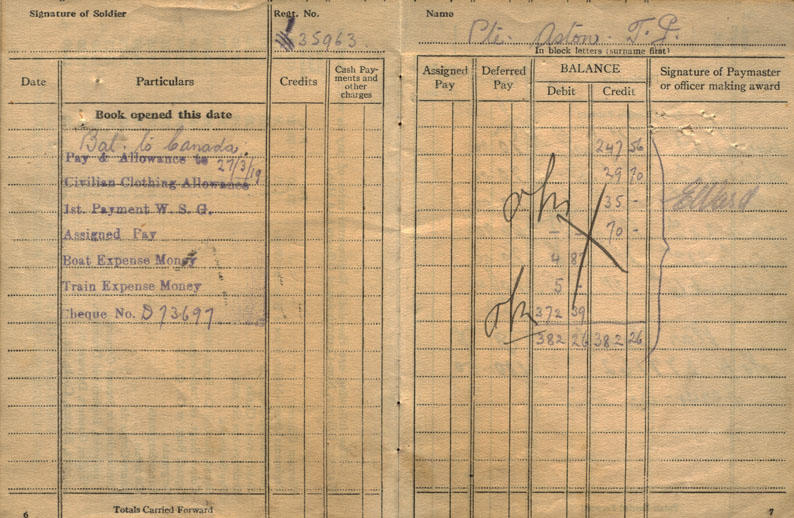 Signature of Soldier
Regt. No.
35963.
Name
Pte. Aston. T. L.
In block letters (surname first)
Date
Particulars
Credits
Cash Pay-
ments and
other
charges
Assigned
Pay
Deferred
Pay
BALANCE
Debit
Credit
Signature of Paymaster
or officer making award
Book opened this date
Bal. to Canada.
247 56
Pay & Allowance to 27/3/19
29 70
Civilian Clothing Allowance
35 -
1st. Payment W. S. G.
70 -
Assigned Pay
-
Boat Expense Money
4 87
Train Expense Money
5 -
Cheque No. D73697
372 39
382 26 382 26
6
Totals Carried Forward
7